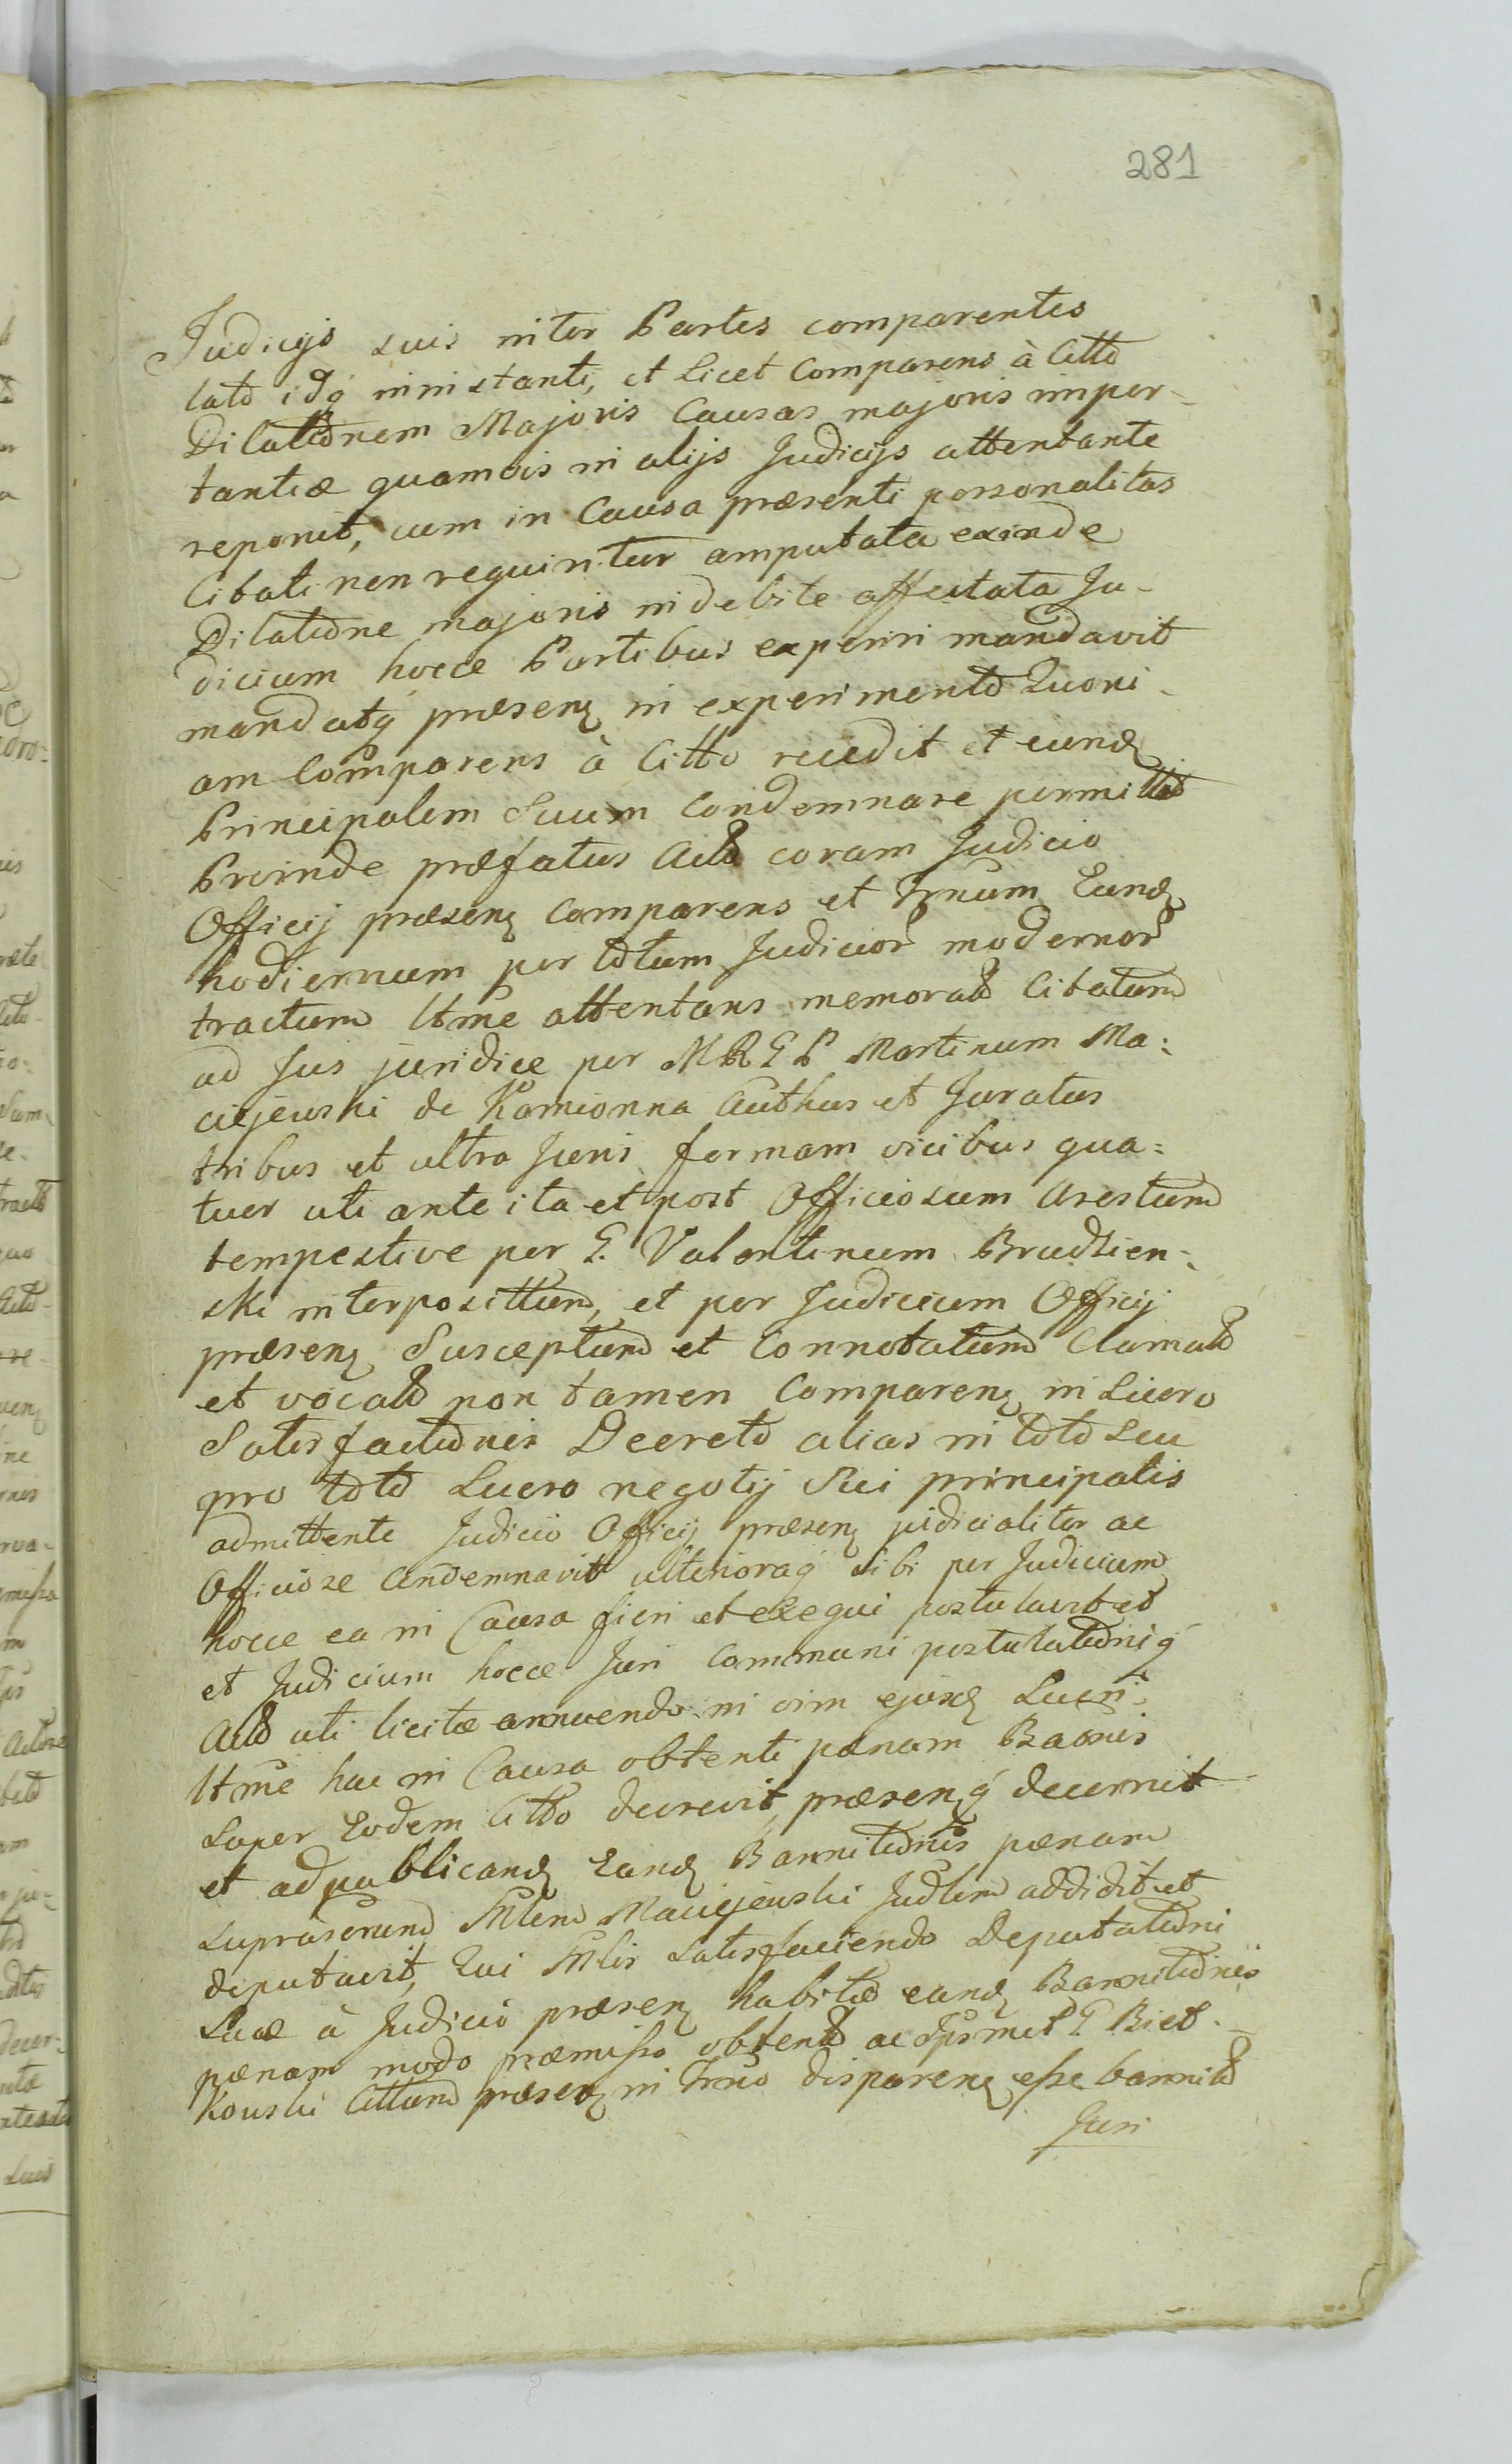 281
Judicijs suis inter Partes comparentes
lato idq́ ininstanti, et licet Comparens à Citto
Dilationem Majoris Causas majoris impor-
tantiæ quamvis in alijs Judicijs attentante
reponit, cum in Causa præsenti personalitas
Citati non requiritur amputata exinde
Dilatione majoris indebite affectata Ju-
dicium hocce Partibus experiri mandavit
mandatq́ præsenꝫ in experimento Quoni-
am Comparens à Citto recedit et eundꝫ
Principalem Suum Condemnare permittit
Proinde præfatus Actor coram Judicio
Officij præsenꝫ Comparens et Trnum Eundꝫ
hodiernum per totum Judicior modernor
tractum Ltme attentans memorato Citatum
ad Jus juridice per MRGP Martinum Ma:
ciejewski de Kamionna Authus et Juratus
tribus et ultra Juris formam vicibus qua:
tuor uti ante ita et post Officiosum Arestum
tempestive per G. Valentinum Brudzien:
ski interposittum, et per Judicium Officij
præsenꝫ Susceptum et Connotatum Clamato
et vocato non tamen Comparenꝫ in Lucro
Satisfactionis Decreto alias in toto seu
pro toto Lucro negotij Sui principalis
admittente Judicio Officij præsenꝫ judicialiter ac
Officiose Condemnavit ulterioraq́ sibi per Judicium
hocce ea in Causa fieri et exequi postulavit
et Judicium hocce Juri Communi postulationiq́
Acto uti licitæ annuendo in vim ejusdꝫ Lucri
Ltme hac in Causa obtenti pænam Baonis
super Eodem Citto decrevit, præsenꝫq́ decernit
et ad publicandꝫ Eandꝫ Bannitionis pænam
suprascrium Mlem Maciejewski Judlem addidit et
deputavit, Qui Mlis satisfaciendo Deputationi
suæ à Judicio præsenꝫ habitæ eandꝫ Bannitionis
pænam modo præmisso obtento ac Ipsmet G. Biel-
kowski Cittum præsenꝫ in Trno disparenꝫ esse bannito
Juri